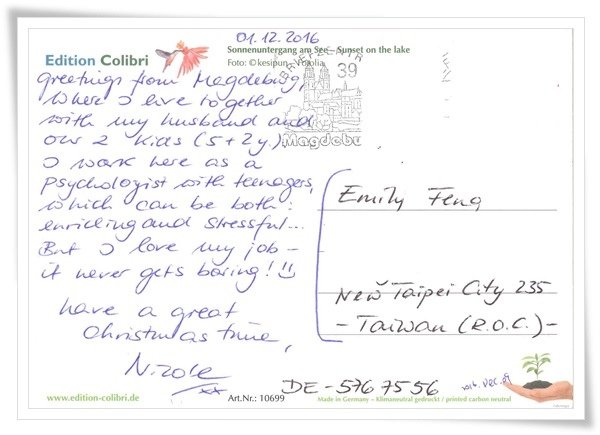 01.12.2016
Edition Colibri
Sonnenuntergang am See – Sunset on the lake
Foto: © kesipun - Fotolia
BRIEFZENTRUM
39
Magdebu
Greetings from Magdeburg,
where I live together
with my husband and
our 2 kids (5+2y.)
I work here as a
psychologist with teenagers,
which can be both:
enriching and stressful...
But I love my job –
it never gets boring!
have a great
Christmas time,
Nicole
Emily Feng
New Taipei City 235
- Taiwan (R.O.C.) -
DE - 576 75 56
2016. DEC. 09
www.edition-colibri.de
Art.Nr.: 10699
Made in Germany – Klimaneutral gedruckt / printed carbon neutral